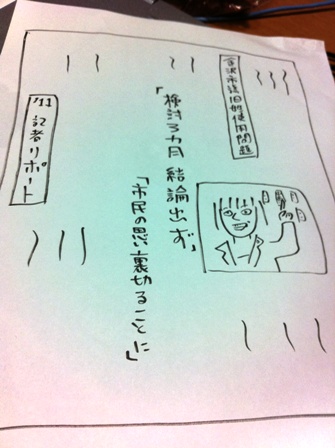 金沢市議旧姓使用問題
「検討3カ月 結論出ず」
「市民の思い裏切ることに」
記者リポート